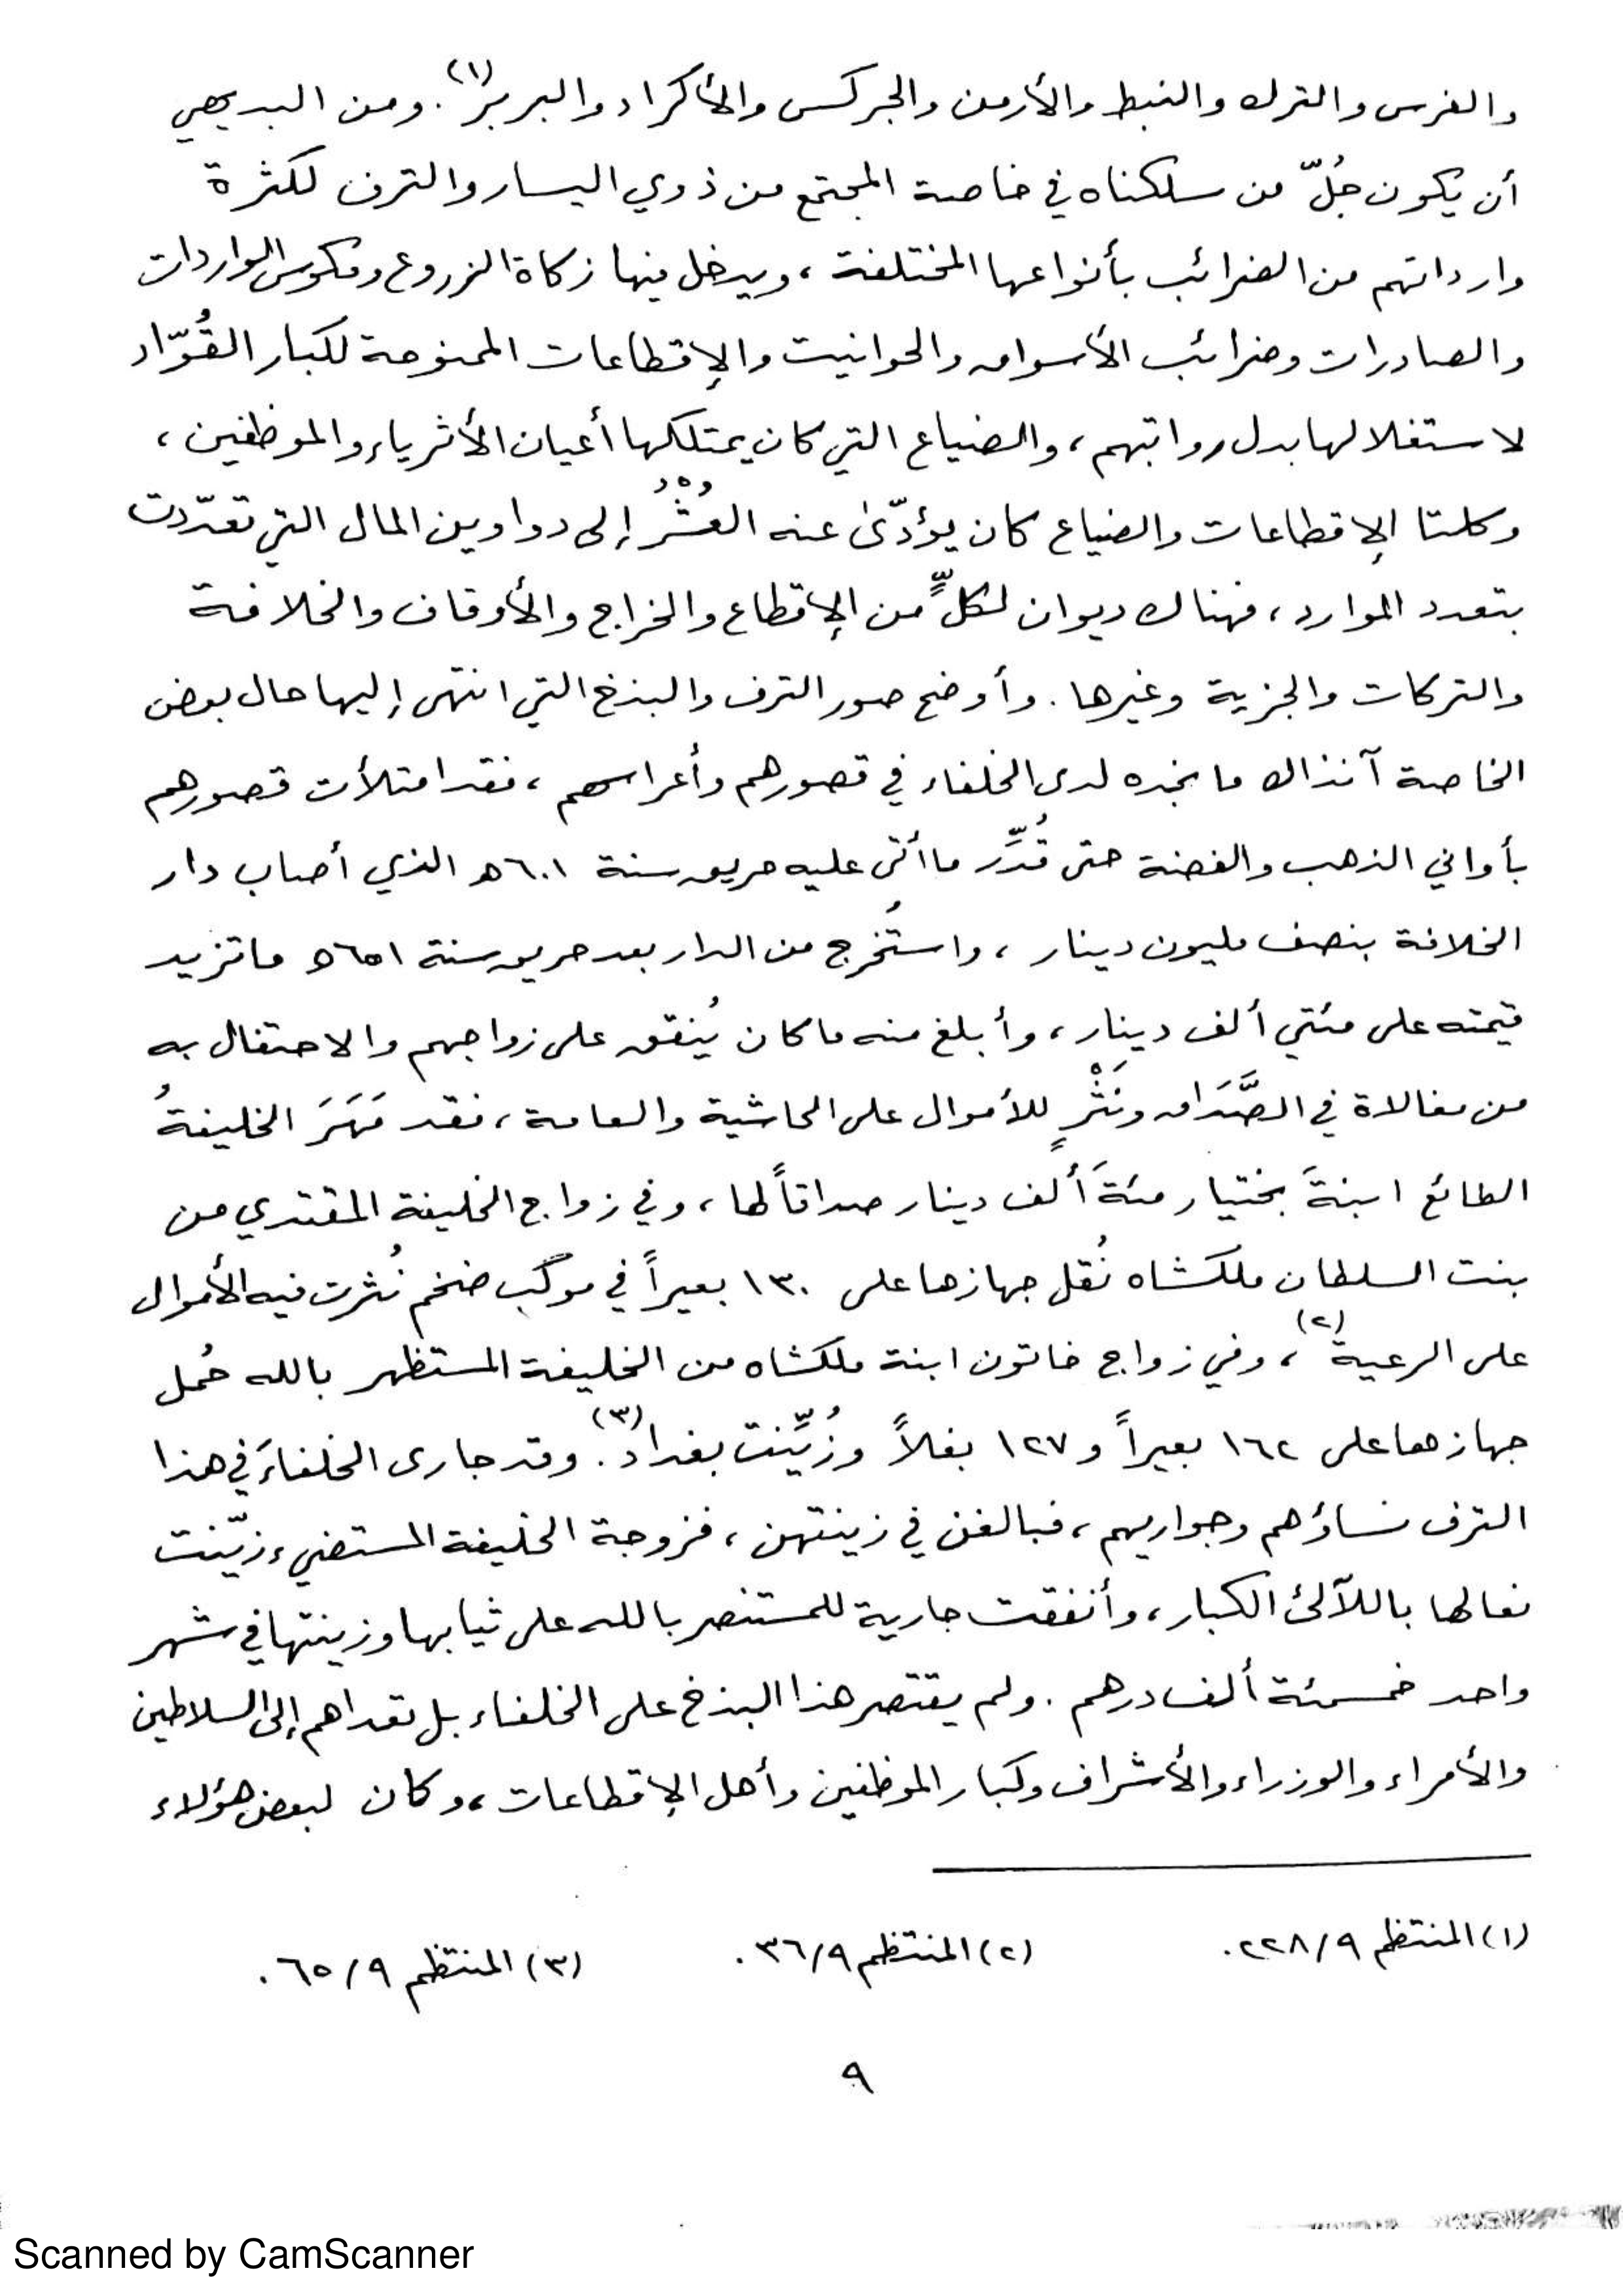 والفرس والترك والنبط والأرمن والجركس والأكراد والبربر(١). ومن البديهي
أن يكون جُلّ من سلكناه في خاصة المجتمع من ذوي اليسار والترف لكثرة
وارداتهم من الضرائب بأنواعها المختلفة، ويدخل فيها زكاة الزروع ومكوس الواردات
والصادرات وضرائب الأسواق والحوانيت والإقطاعات الممنوحة لكبار القُوّاد
لاستغلالها بدل رواتبهم، والضياع التي كان يمتلكها أعيان الأثرياء والموظفين،
وكلتا الإقطاعات والضياع كان يؤدّى عنه العُشْرُ إلى دواوين المال التي تعدّدت
بتعدد الموارد، فهناك ديوان لكلٍّ من الإقطاع والخراج والأوقاف والخلافة
والتركات والجزية وغيرها. وأوضح صور الترف والبذخ التي انتهى إليها حال بعض
الخاصة آنذاك ما نجده لدى الخلفاء في قصورهم وأعراسهم، فقد امتلأت قصورهم
بأواني الذهب والفضة حتى قُدِّر ما أتى عليه حريق سنة ٦٠١ هـ الذي أصاب دار
الخلافة بنصف مليون دينار، واستُخرج من الدار بعد حريق سنة ٥٥١ هـ ما تزيد
قيمته على مئتي ألف دينار، وأبلغ منه ما كان يُنفق على زواجهم والاحتفال به
من مغالاة في الصَّدَاق ونَثْرٍ للأموال على الحاشية والعامة، فقد مَهَرَ الخليفةُ
الطائع ابنةَ بختيار مئةَ ألف دينار صداقاً لها، وفي زواج الخليفة المقتدي من
بنت السلطان ملكشاه نُقل جهازها على ١٣٠ بعيراً في موكب ضخم نُثرت فيه الأموال
على الرعية(٢)، وفي زواج خاتون ابنة ملكشاه من الخليفة المستظهر بالله حُمل
جهازها على ١٦٢ بعيراً و ١٢٧ بغلاً وزُيِّنت بغداد(٣). وقد جارى الخلفاءَ في هذا
الترف نساؤهم وجواريهم، فبالغن في زينتهن، فزوجة الخليفة المستضيء زيّنت
نعالها باللآلئ الكبار، وأنفقت جارية للمستنصر بالله على ثيابها وزينتها في شهر
واحد خمسمئة ألف درهم. ولم يقتصر هذا البذخ على الخلفاء بل تعداهم إلى السلاطين
والأمراء والوزراء والأشراف وكبار الموظفين وأهل الإقطاعات، وكان لبعض هؤلاء
(١) المنتظم ٢٢٨/٩. (٢) المنتظم ٣٦/٩. (٣) المنتظم ٦٥/٩.
٩
Scanned by CamScanner